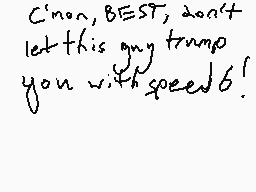 C'mon, BEST, don't
let this guy trump
you with speed 6!